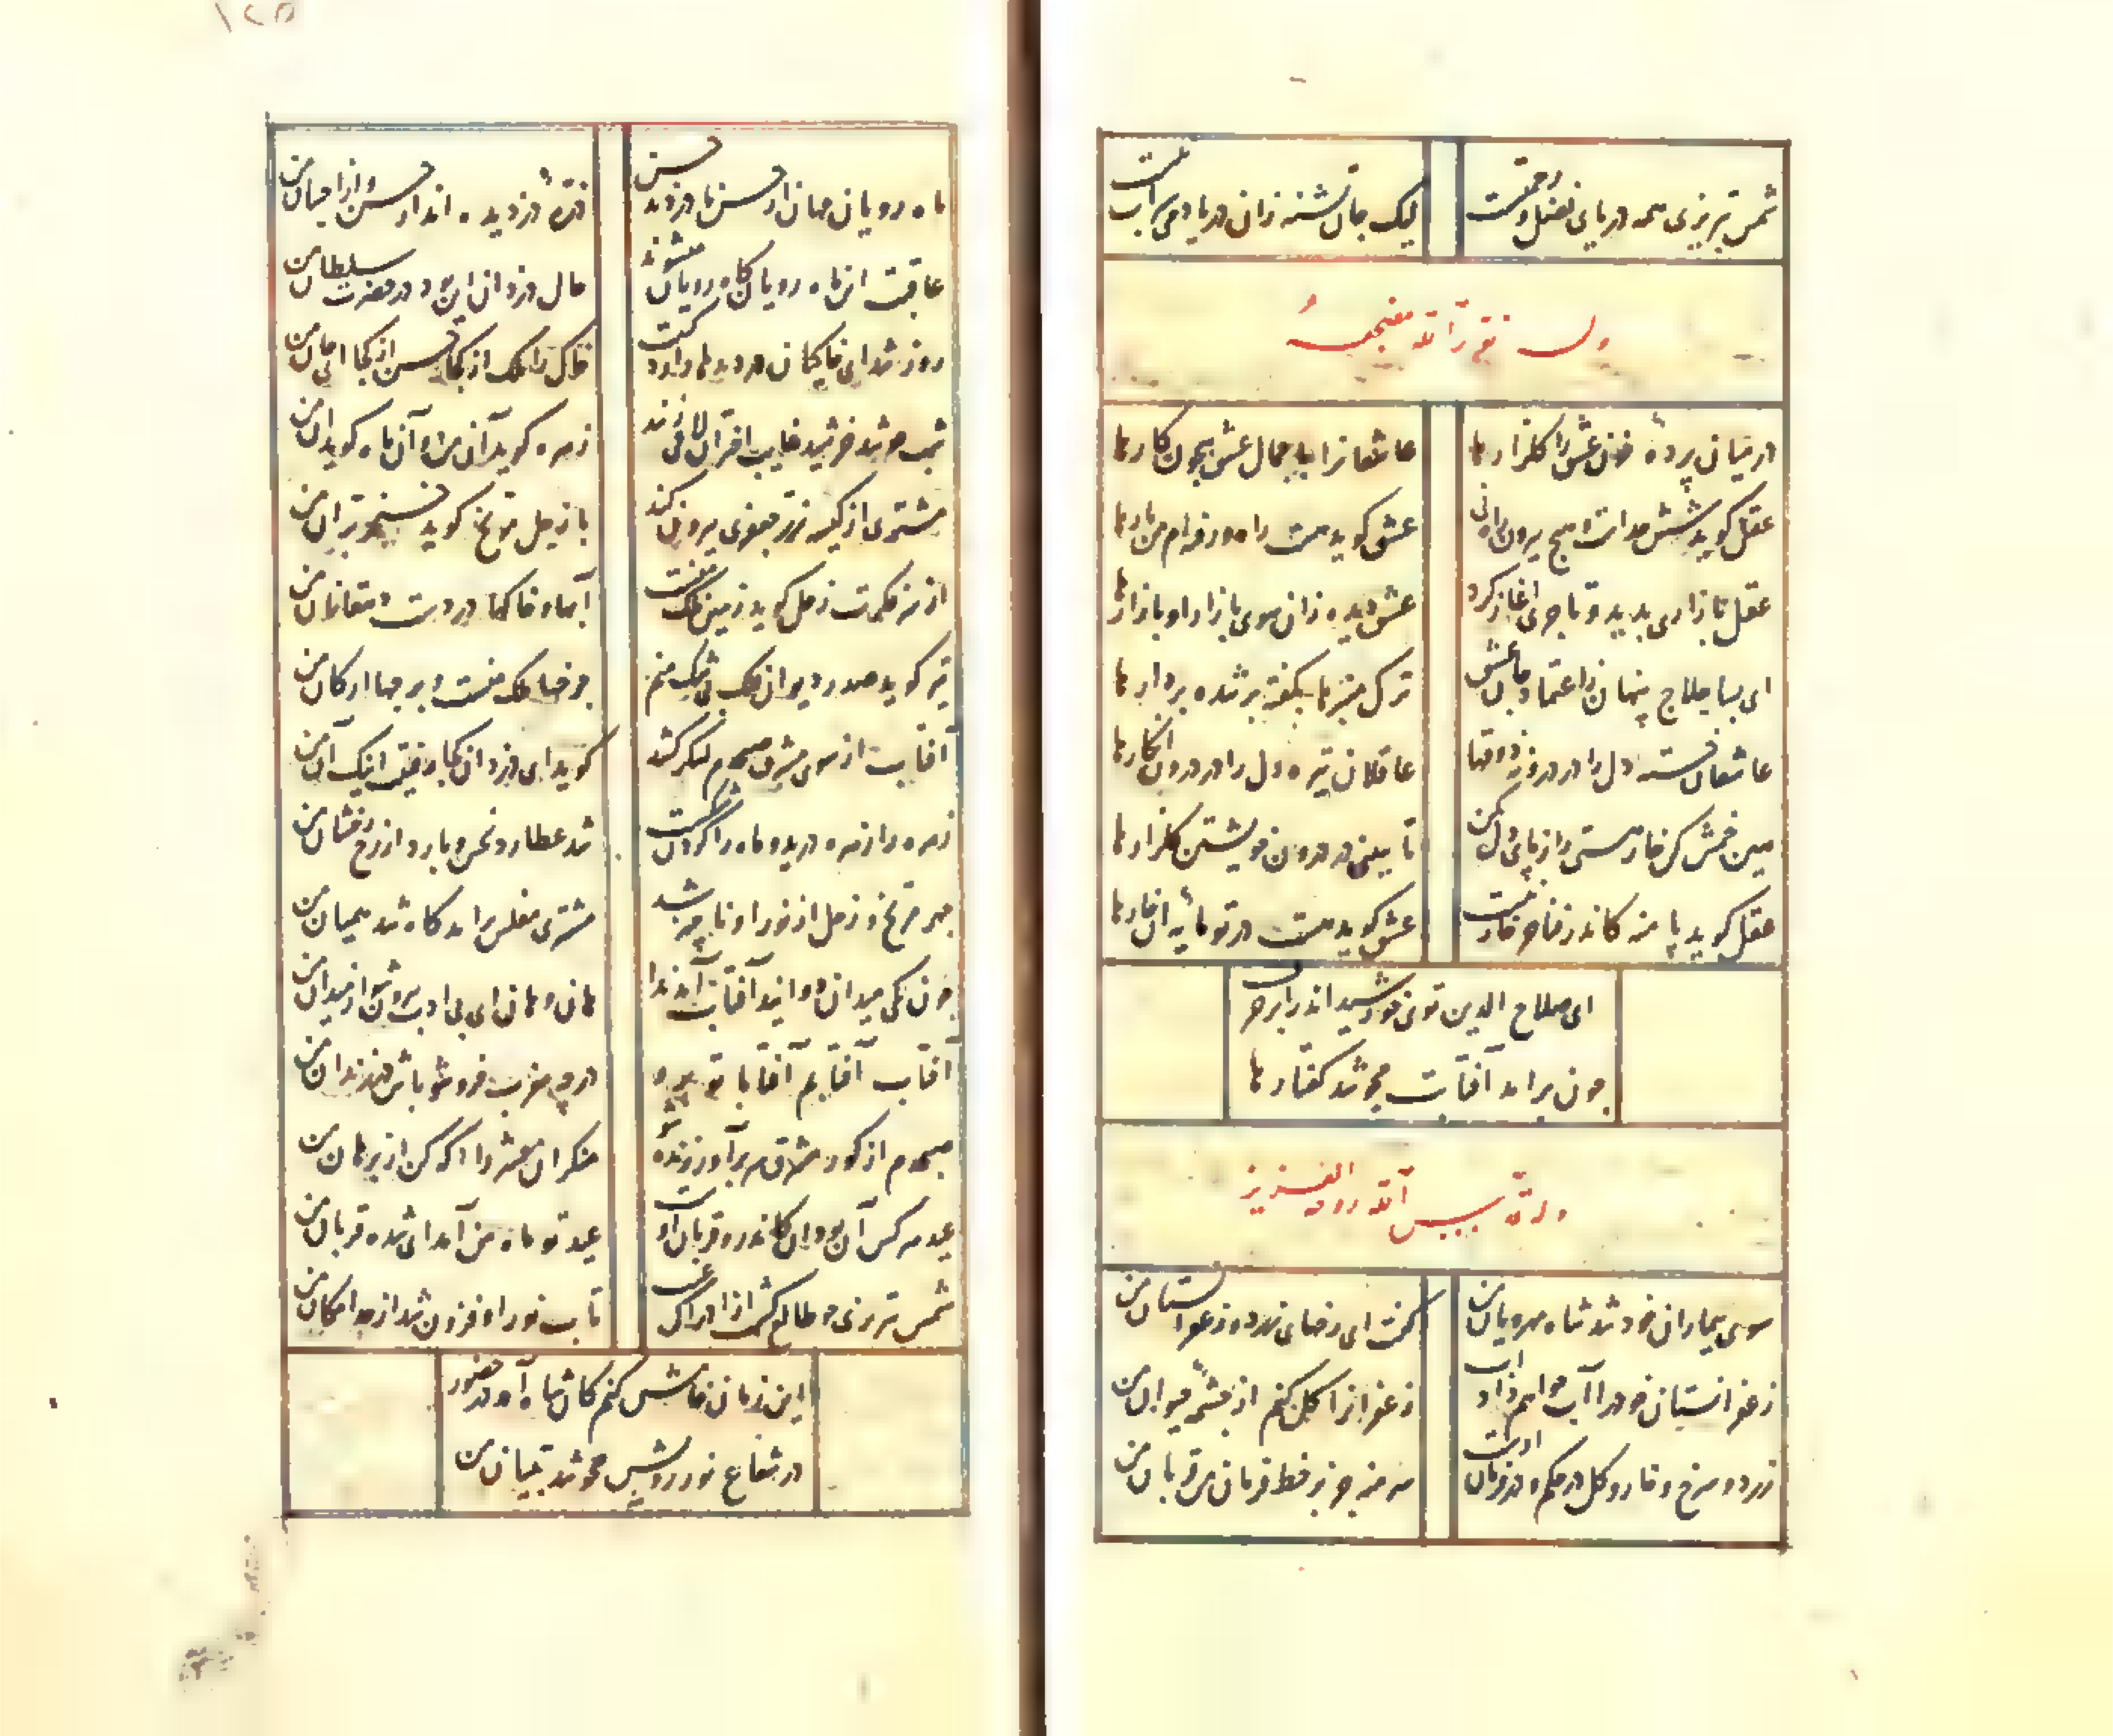 شمس تبریزی همه دریای فضل و رحمتست
لیک جان تشنه زان دریا دمی سیراب نیست
وله نور الله مضجعه
در میان پرده خون عشق را گلزارها
عاشقانرا با جمال عشق بیچون کارها
عقل گوید شش جهت را هیچ بیرون راه نی
عشق گوید هست راه و رفته‌ام من بارها
عقل بازاری بدید و تاجری آغاز کرد
عشق دیده زان سوی بازار او بازارها
ای بسا حلاج پنهان ز اعتماد جان عشق
ترک منبرها بگفته بر شده بر دارها
عاشقان خسته دل را در درونه ذوقها
عاقلان تیره دل را در درون انکارها
هین خمش کن خار هستی را ز پای دل بکن
تا ببینی در درون خویشتن گلزارها
عقل گوید پا منه کاندر فنا جز خار نیست
عشق گوید هست در تو مایه آن خارها
ای صلاح الدین توی خورشید اندر ابر حرف
چون برآمد آفتابت محو شد گفتارها
وله قدس الله روحه العزیز
سوی بیماران خود شد شاه مهرویان من
گفت ای رخهای زرد و زعفرانستان من
زعفرانستان خود را آب خواهم داد آب
زعفرانرا گل کنم از چشمه حیوان من
زرد و سرخ و خار و گل در حکم و در فرمان ماست
سر منه جز بر خط فرمان من قربان من
ماه رویان جهان از حسن ما دزدند حسن
ذره دزدیده‌اند از حسن و از احسان من
عاقبت آن ماه رویان کاه رویان میشوند
حال دزدان این بود در حضرت سلطان من
روز شد ای خاکیان دزدیدها را رد کنید
خاک را ملک از کجا حسن از کجا ای جان من
شب چو شد خورشید غایب اختران لافی زنند
زهره گوید آن من دان ماه گوید آن من
مشتری از کیسه زر جعفری بیرون کند
با زحل مریخ گوید خنجر بران من
تیر گوید صدر دیوان فلک بی شک منم
چرخها ملک منست و برجها ارکان من
آفتاب از سوی مشرق صبحدم لشکر کشد
گوید ای دزدان کجا رفتید اینک آن من
زهره را زهره درید و ماه را گردن شکست
شد عطارد خشک و بارد از رخ رخشان من
مشتری مفلس برآمد کاه شد همیان من
چون یکی میدان دوانید آفتاب آمد ندا
هان و هان ای بی ادب بیرون شو از میدان من
آفتاب آفتابم آفتابا تو برو
در چه مغرب فرو شو باش در زندان من
صبحدم از گور مشرق سر برآور زنده شو
منکران حشر را آگه کن از برهان من
عید هر کس آن بود کاندر قربان اوست
عید تو ماه من آمد ای شده قربان من
شمس تبریزی
تاب نور او فزون شد از حد امکان من
این زمان خامش کنم کان شاه آمد در حضور
در شعاع نور رویش محو شد تبیان من